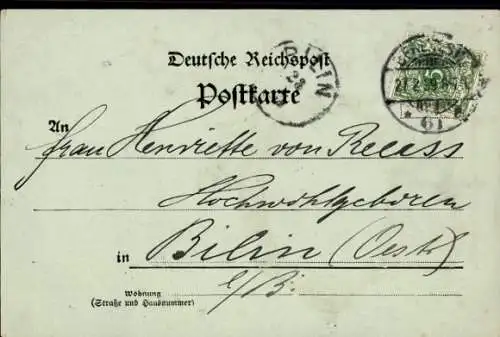 Deutsche Reichspost
Postkarte
BILIN
An
Frau Henriette von
Hochwohlgeboren
in Bilin (Oestr)
Wohnung
(Straße und Hausnummer)
a/B.